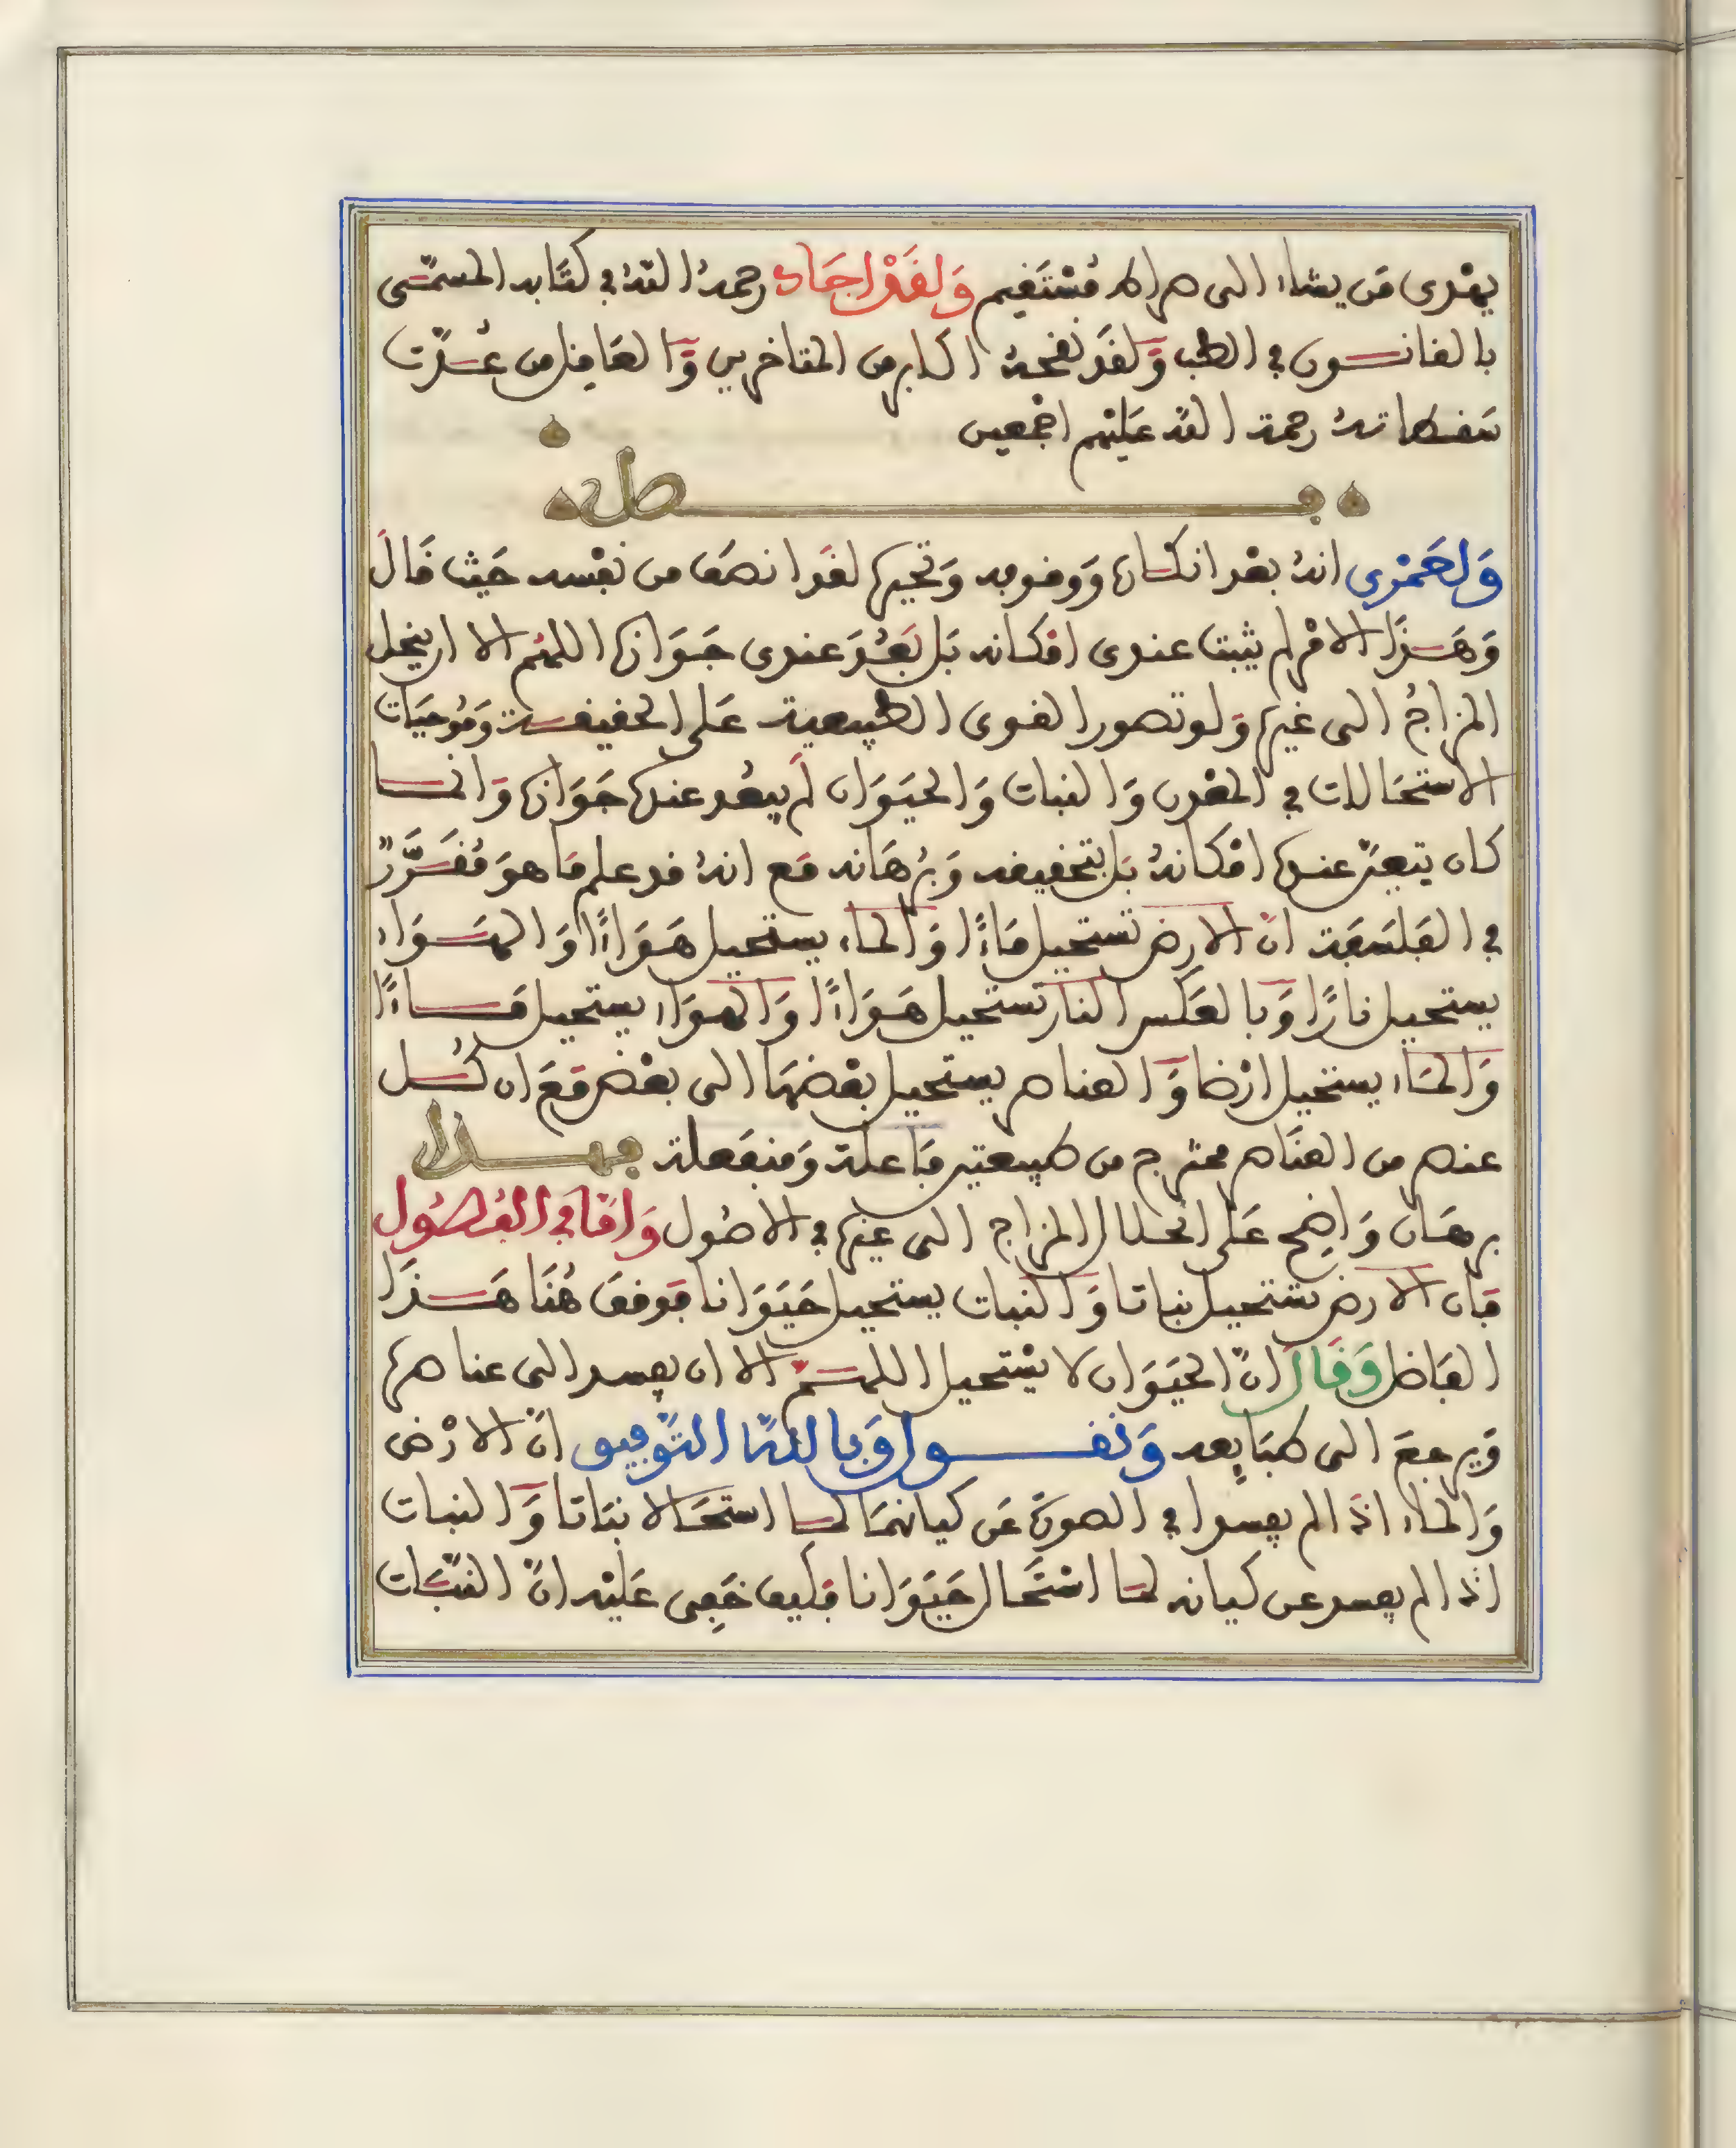 يهْدى مَن يشاء الى صراط مُسْتَقيم وَلقَدْ اجَاد رحمهُ اللهُ في كتَابه المسمّى
بالقانسون في الطب وَلقَد نقحهُ اكابر من المتاخرين وَالعَاقل من عُدّت
سَقطاتهُ رحمة الله عَليْهم اجْمعين
فصل
وَلعَمْرى انهُ بعْد انكاره وَوقوفه وَتحيره لقَد انصَف من نفْسه حَيْث قال
وَهَذَا الامْر لم يثبت عندى امْكانه بَل بَعُدَ عندى جَوَازه اللهُم الا ان ينحل
المزاجُ الى غيره وَلو تصور القوى الطبيعية عَلى الحقيقة وَمُوجبَات
الاستحَالات في المعْدن وَالنبات وَالحيَوَان لَم يبعُد عندهُ جَوَازه وَانما
كان يتعيّن عندهُ امْكانهُ بَل بتحقيقه وَبُرْهَانه مَع انهُ قد علم مَا هوَ مُقَرَّرٌ
في الفَلسَفة ان الارض تستحيل مَاءً وَالماء يستحيل هَوَاءً وَالهَوَاء
يستحيل نارًا وَبالعَكس النار تستحيل هَوَاءً وَالهوَاء يستحيل مَاءً
وَالمَاء يستحيل ارْضا وَالعناصر يستحيل بعْضهَا الى بعْض مَعَ ان كُل
عنصر من العنَاصر ممتزج من طبيعتين فَاعلة وَمنفَعلة فهلا
برهَان وَاضح عَلى انحلال المزاج الى غيْره في الاصُول وَامَا في الفُصُول
فَان الارض تسْتحيل نباتا وَالنبات يستحيل حَيَوَانا فوَقفَ هُنَا هَذَا
الفَاضل وَقَالَ انّ الحَيَوَان لا يسْتحيل اللهُمّ الا ان يفسد الى عناصره
وَيرجعَ الى طبَايعه وَنقسول وَبالله التوْفيق انّ الارْض
وَالماء اذا لم يفسدا في الصورة عَن كيانهمَا لما استحَالا نبَاتا وَالنبات
اذا لم يفسد عن كيانه لمَا اسْتَحَال حَيَوَانا فكيف خَفِى عَليْه انّ النّبَات